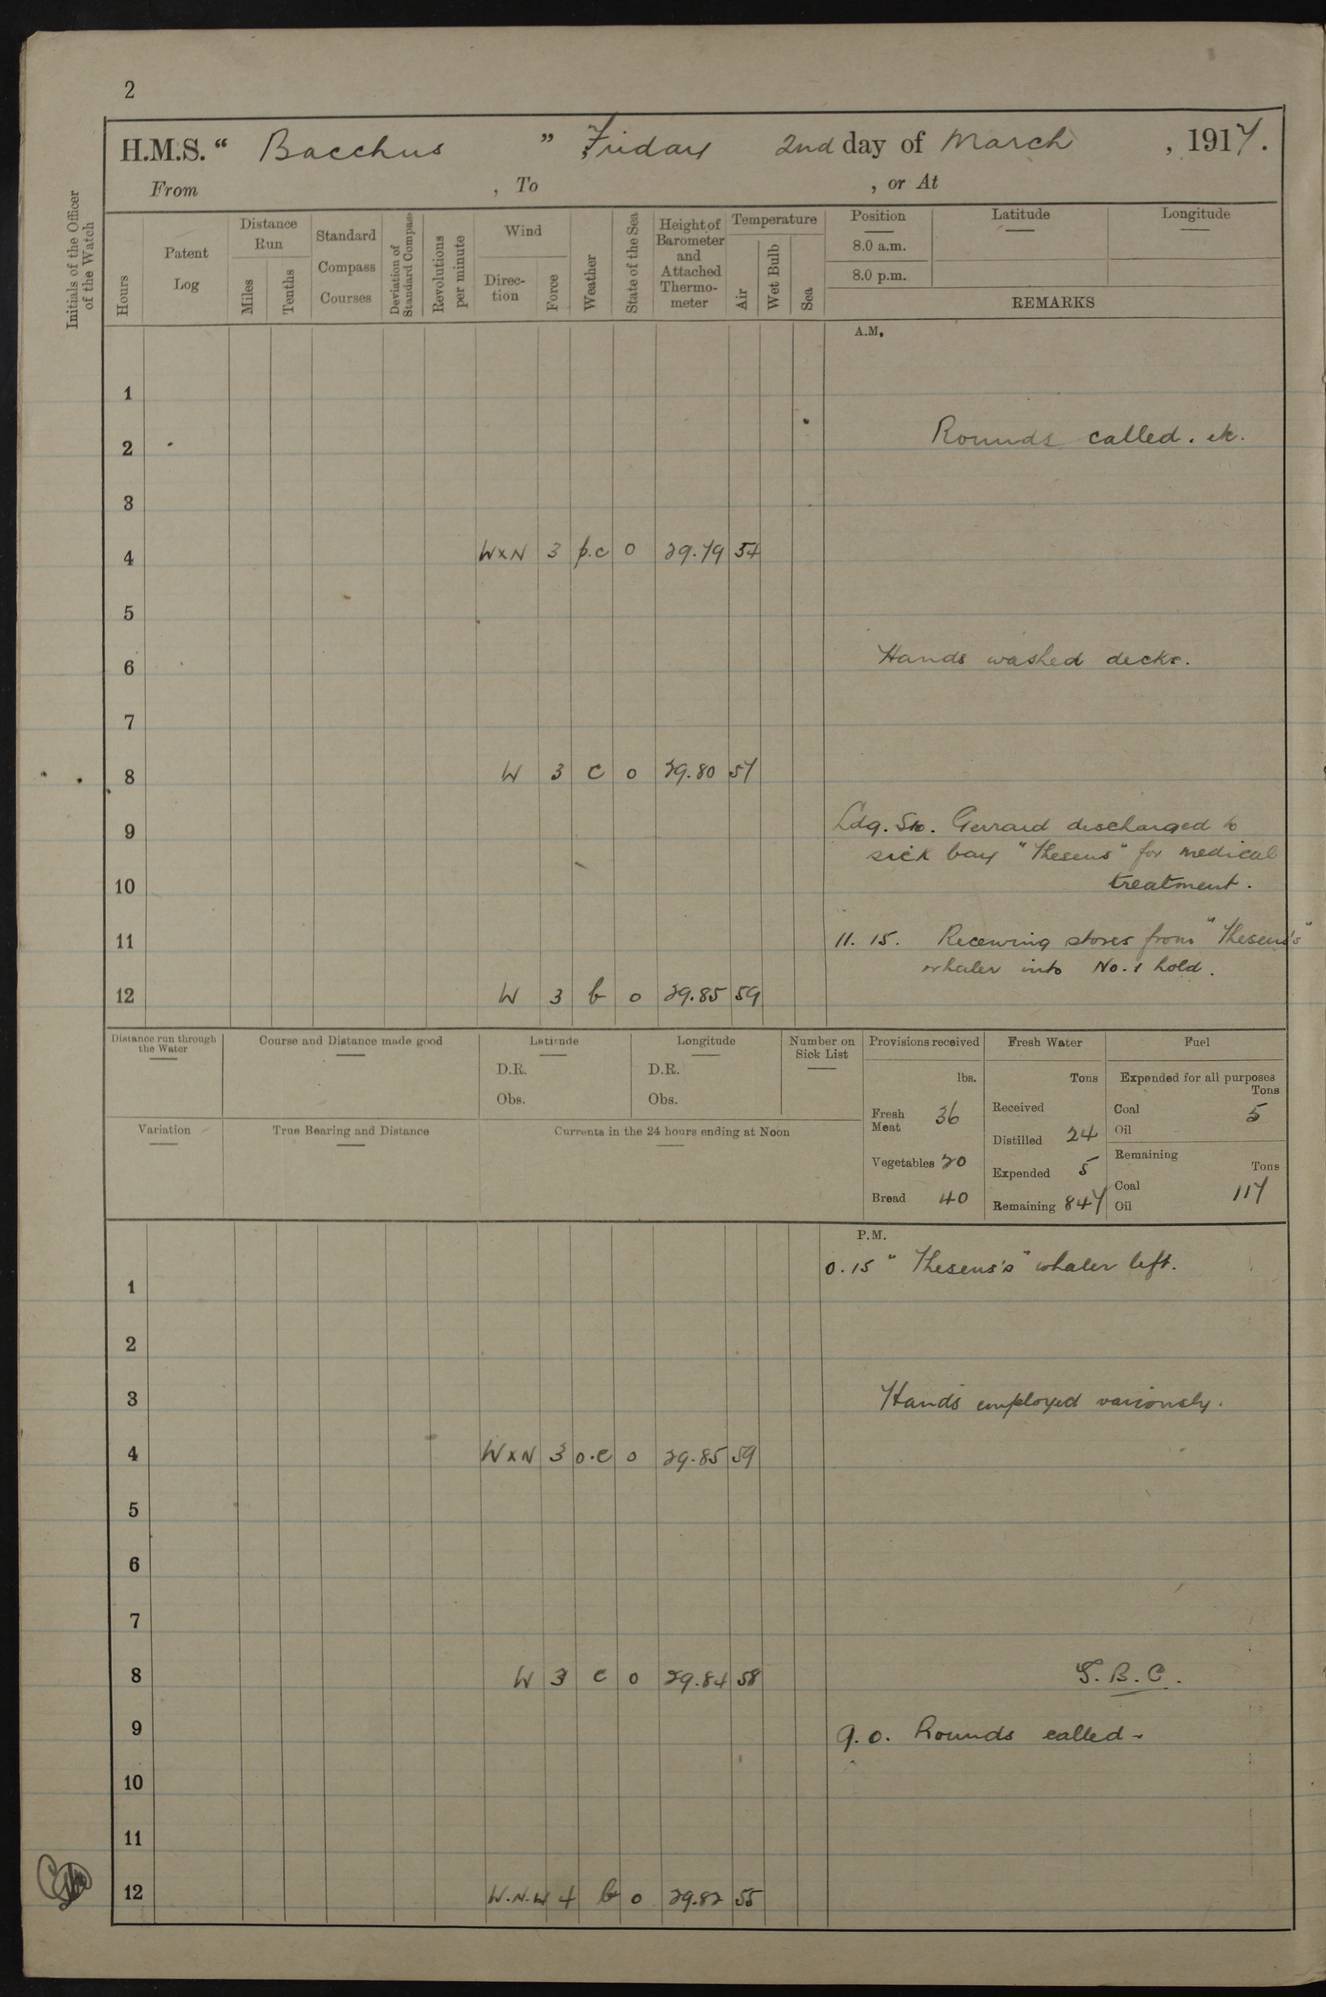 2
H.M.S. “ Bacchus ” Friday 2nd day of March , 1917.
From , To , or At
Initials of the Officer of the Watch
Hours
Patent Log
Distance Run
Miles
Tenths
Standard Compass Courses
Deviation of Standard Compass
Revolutions per minute
Wind
Direction
Force
Weather
State of the Sea
Height of Barometer and Attached Thermometer
Temperature
Air
Wet Bulb
Sea
Position Latitude Longitude
8.0 a.m.
8.0 p.m.
REMARKS
A.M.
1
2 Rounds called.
3
4 WxN 3 b.c 0 29.79 57
5
6 Hands washed decks.
7
8 W 3 c 0 29.80 57
9 Ldg. Sto. Gerrard discharged to
sick bay "Theseus" for medical
10 treatment.
11 11.15. Receiving stores from "Theseus's"
whaler into No.1 hold.
12 W 3 b 0 29.85 59
Distance run through the Water
Course and Distance made good
Latitude
D.R.
Obs.
Longitude
D.R.
Obs.
Number on Sick List
Variation
True Bearing and Distance
Currents in the 24 hours ending at Noon
Provisions received
lbs.
Fresh Meat 36
Vegetables 20
Bread 40
Fresh Water
Tons
Received
Distilled 24
Expended 5
Remaining 847
Fuel
Expended for all purposes
Tons
Coal 5
Oil
Remaining
Tons
Coal 117
Oil
P.M.
0.15 "Theseus's" whaler left.
1
2
3 Hands employed variously.
4 WxN 3 o.c 0 29.85 59
5
6
7
8 W 3 c 0 29.84 58 G.B.C.
9 9.0. Rounds called-
10
11
12 W.N.W 4 b 0 29.82 55